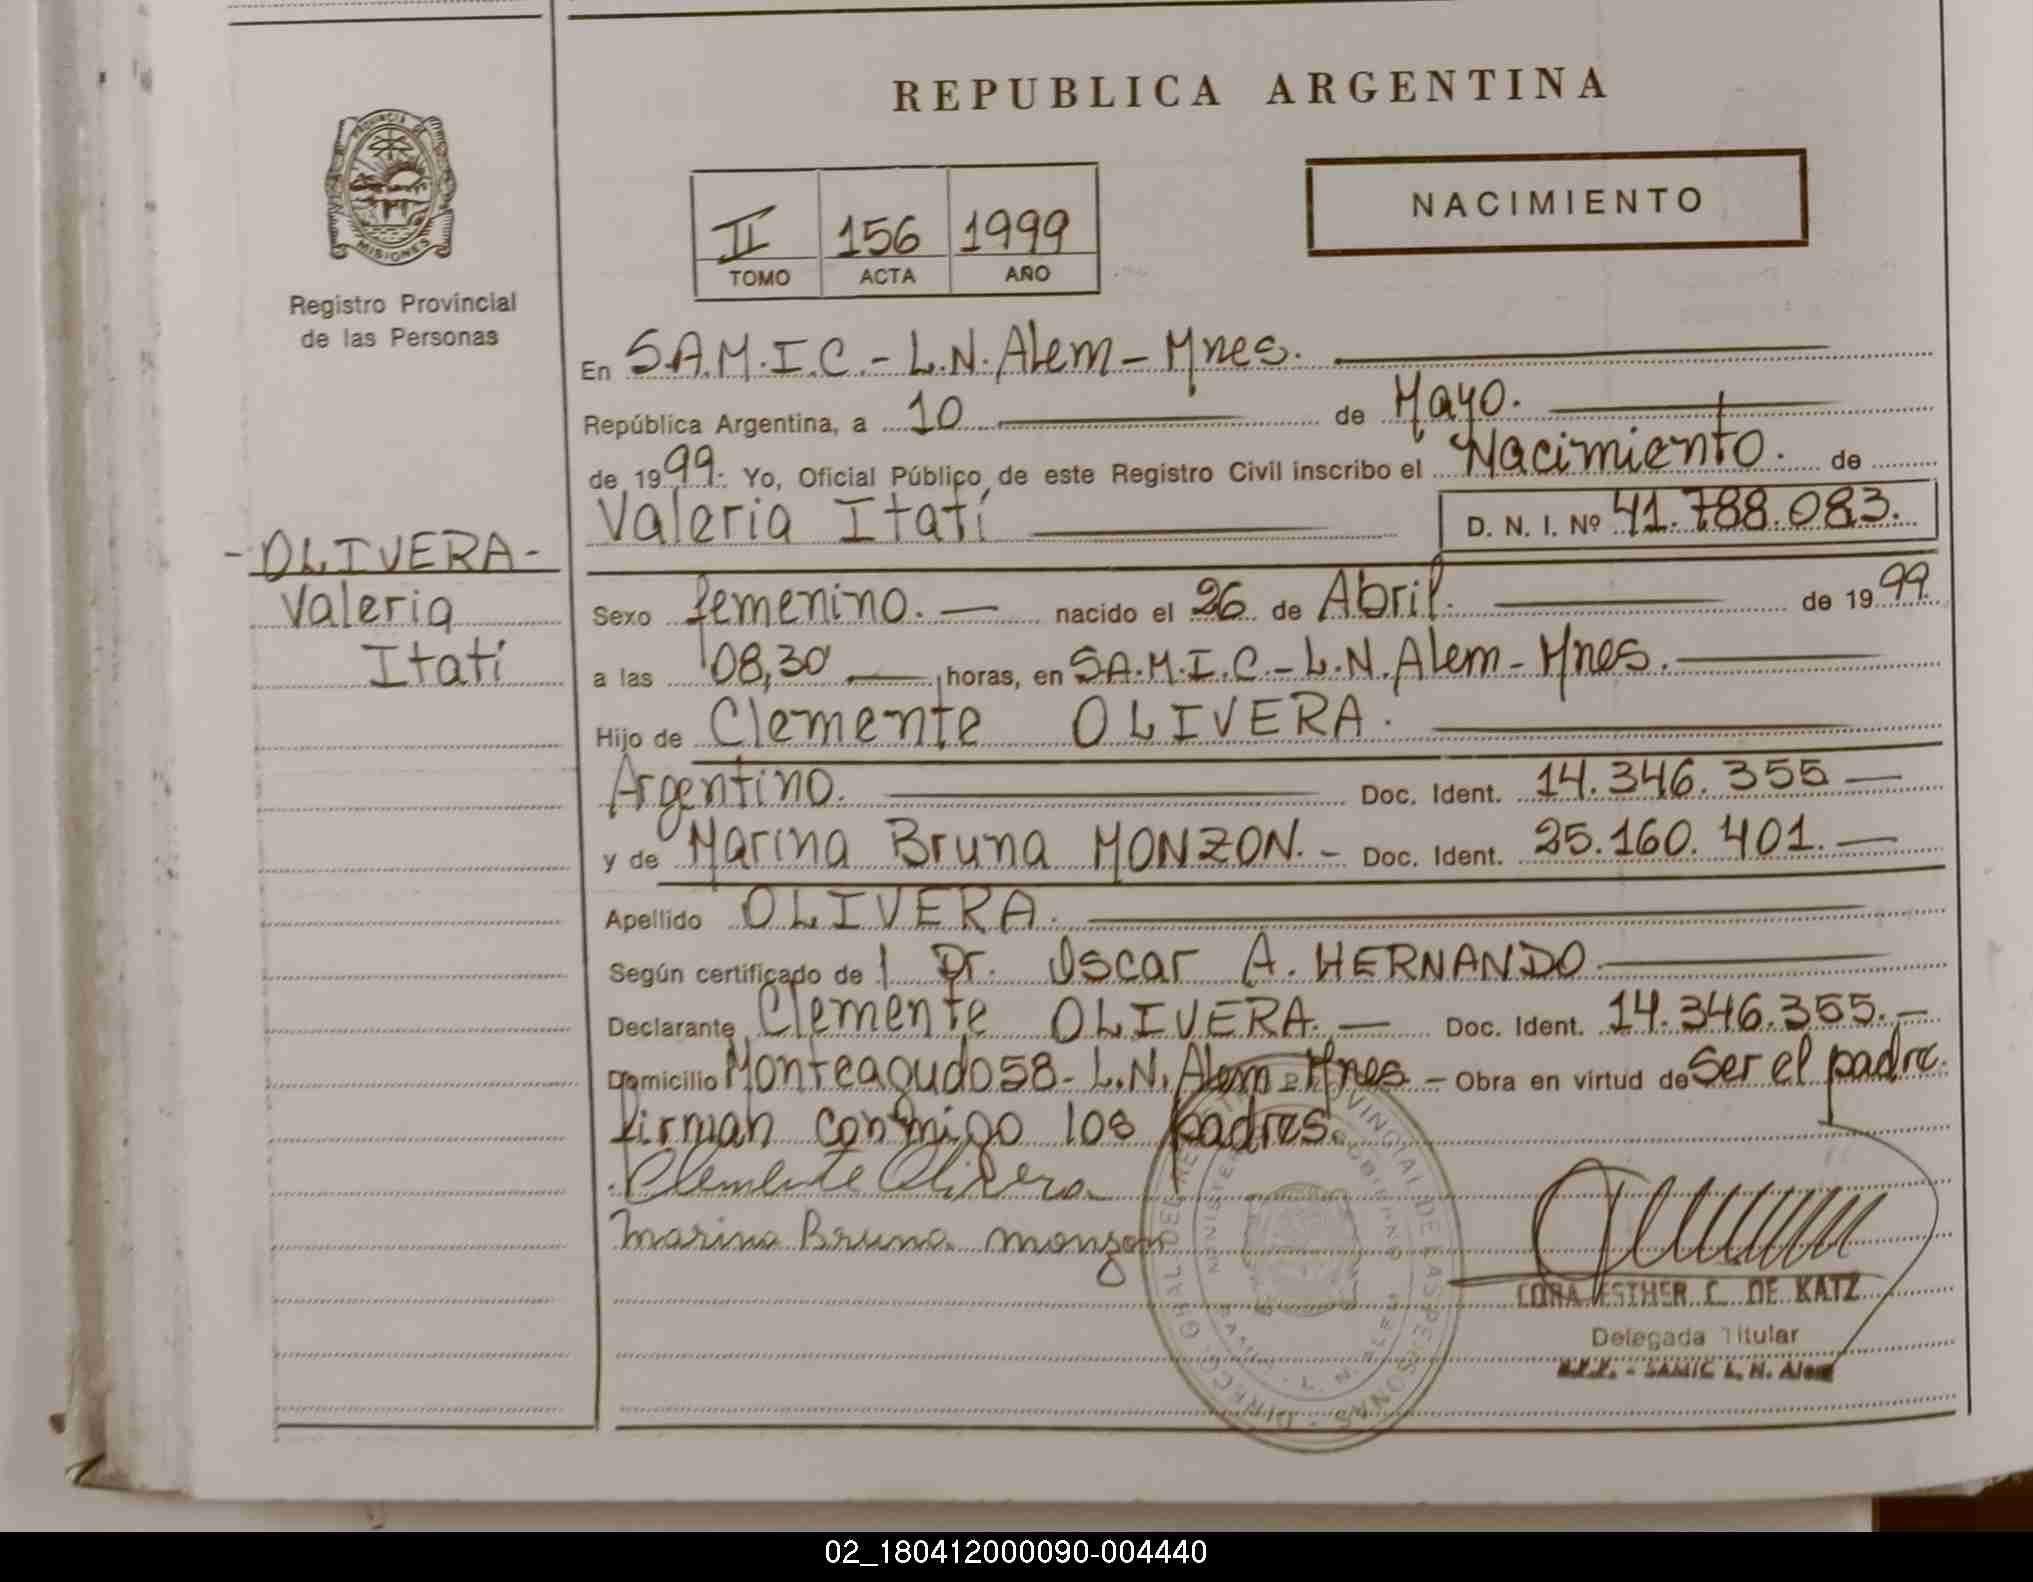 REPUBLICA ARGENTINA
PROVINCIA DE
MISIONES
Registro Provincial
de las Personas
NACIMIENTO
II 156 1999
TOMO ACTA AÑO
En S.A.M.I.C.- L.N.Alem - Mnes.
República Argentina, a 10 de Mayo.
de 1999. Yo, Oficial Público de este Registro Civil inscribo el Nacimiento. de
Valeria Itatí D. N. I. Nº 41.788.083.
- OLIVERA -
Valeria
Itatí
Sexo femenino. nacido el 26 de Abril. de 1999.
a las 08,30 horas, en S.A.M.I.C.- L.N.Alem - Mnes.
Hijo de Clemente OLIVERA.
Argentino. Doc. Ident. 14.346.355
y de Marina Bruna MONZON. - Doc. Ident. 25.160.401.
Apellido OLIVERA.
Según certificado de l Dr. Oscar A. HERNANDO.
Declarante Clemente OLIVERA. Doc. Ident. 14.346.355.
Domicilio Monteagudo 58 - L.N. Alem - Mnes - Obra en virtud de ser el padre.
firman conmigo los padres.
Clemente Olivera
Marina Bruna monzon
CORA ESTHER C. DE KATZ
Delegada Titular
SAMIC L. N. Alem
02_180412000090-004440